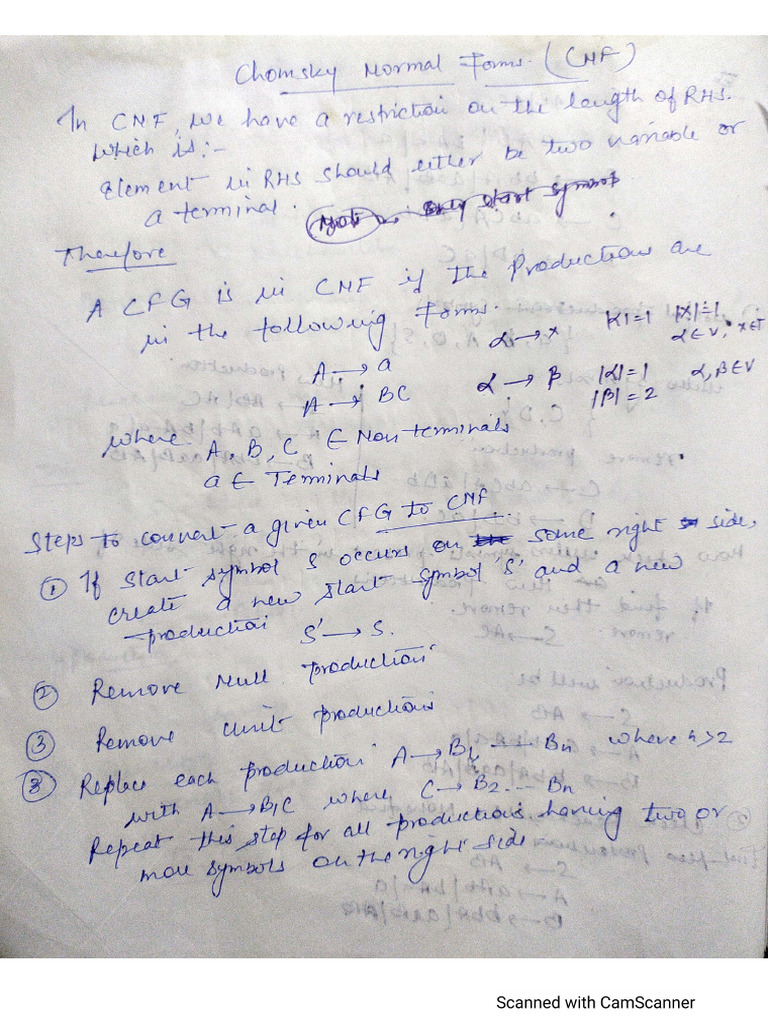 Chomsky Normal Forms. (CNF)
In CNF, we have a restriction on the length of RHS.
which is:-
Element in RHS should either be two variable or
a terminal. Note only start symbol
Therefore
A CFG is in CNF if the Productions are
in the following Forms.
A → a
α → x |α|=1 |x|=1
α ∈ V, x ∈ T
A → BC
α → β |α|=1 α, β ∈ V
|β|=2
where A, B, C ∈ Non terminals
a ∈ Terminals
Steps to convert a given CFG to CNF
① If start symbol S occurs on some right side,
create a new start symbol 'S' and a new
production S' → S.
② Remove Null productions
③ Remove Unit productions
③ Replace each production A → B₁ ---- Bn where n>2
with A → B₁C where C → B₂... Bn
Repeat this step for all productions having two or
more symbols on the right side
Scanned with CamScanner